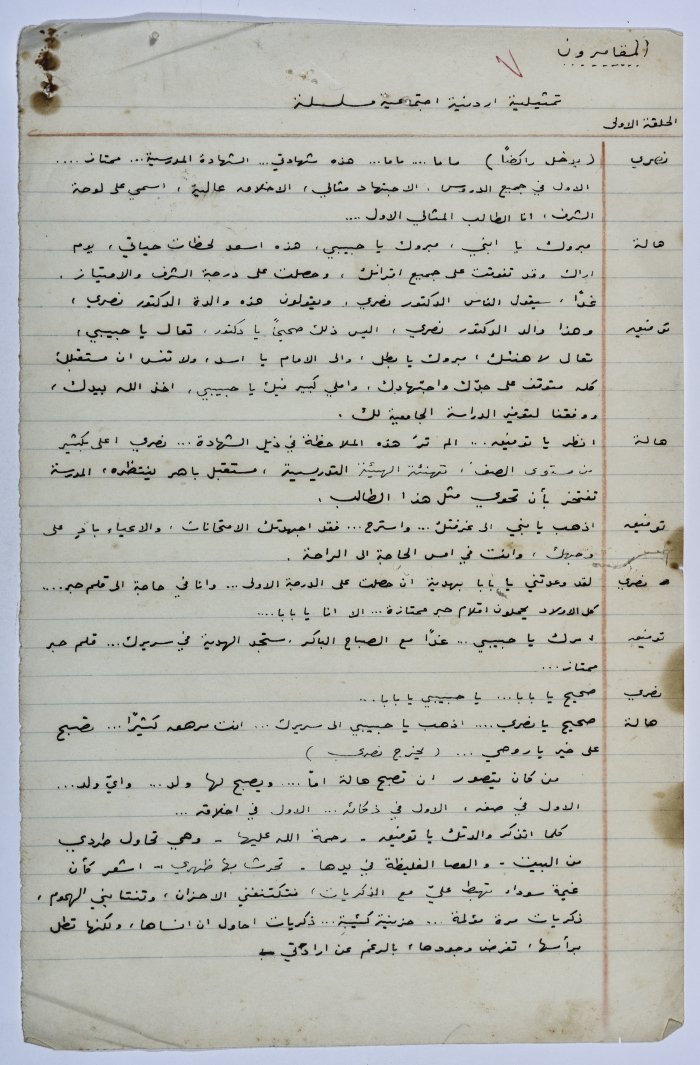 المقامرون
تمثيلية اردنية اجتماعية مسلسلة
الحلقة الاولى
نصري (يدخل راكضاً) ماما... ماما... هذه شهادتي... الشهادة المدرسية... ممتاز....
الاول في جميع الدروس، الاجتهاد مثالي، الاخلاق عالية، اسمي على لوحة
الشرف، انا الطالب المثالي الاول....
هالة مبروك يا ابني، مبروك يا حبيبي، هذه اسعد لحظات حياتي، يوم
اراك وقد تفوقت على جميع اقرانك، وحصلت على درجة الشرف والامتياز.
غداً، سيقول الناس الدكتور نصري، ويقولون هذه والدة الدكتور نصري،
توفيق وهذا والد الدكتور نصري، اليس ذلك صحيحاً يا دكتور، تعال يا حبيبي،
تعال لاهنئك، مبروك يا بطل، والى الامام يا اسد، ولا تنس ان مستقبلك
كله متوقف على جدّك واجتهادك، واملي كبير فيك يا حبيبي، اخذ الله بيدك،
ووفقنا لتوفير الدراسة الجامعية لك.
هالة انظر يا توفيق... الم ترَ هذه الملاحظة في ذيل الشهادة... نصري اعلى بكثير
من مستوى الصف، تهنئة الهيئة التدريسية، مستقبل باهر ينتظره، المدرسة
تفتخر بأن تحوي مثل هذا الطالب.
توفيق اذهب يا بني الى غرفتك... واسترح... فقد اجهدتك الامتحانات، والاعياء بادٍ على
وجهك، وانت في امس الحاجة الى الراحة.
نصري لقد وعدتني يا بابا بهدية ان حصلت على الدرجة الاولى... وانا في حاجة الى قلم حبر....
كل الاولاد يحملون اقلام حبر ممتازة... الا انا يا بابا....
توفيق يا حبيبي... غداً مع الصباح الباكر، ستجد الهدية في سريرك... قلم حبر
ممتاز...
نصري صحيح يا بابا... يا حبيبي يا بابا...
هالة صحيح يا نصري.... اذهب يا حبيبي الى سريرك... انت مرهق كثيراً... تصبح
على خير يا روحي... (يخرج نصري)
من كان يتصور ان تصبح هالة امّاً.... ويصبح لها ولد... وايّ ولد...
الاول في صفه، الاول في ذكائه... الاول في اخلاقه...
كلما اتذكر والدتك يا توفيق - رحمة الله عليها - وهي تحاول طردي
من البيت - والعصا الغليظة في يدها - تحرث بها ظهري - اشعر كأن
غيمة سوداء تهبط عليّ مع الذكريات، فتكتنفني الاحزان، وتنتابني الهموم،
ذكريات مرة مؤلمة... حزينة كئيبة... ذكريات احاول ان انساها، ولكنها تطل
برأسها، تفرض وجودها، بالرغم عن ارادتي -